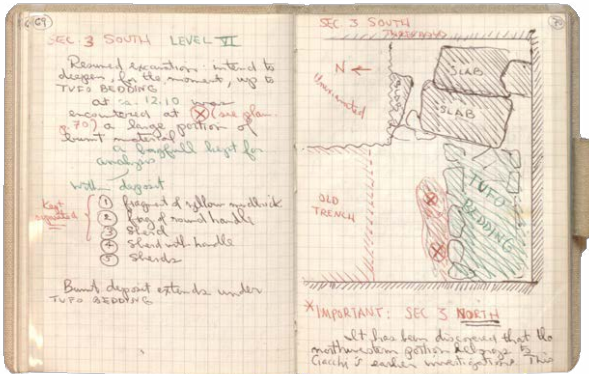 69
SEC. 3 SOUTH LEVEL VI
Resumed excavation: intend to
deepen, for the moment, up to
TUFO BEDDING
at ca. 12.10 was
encountered at X (see plan
p. 70) a large portion of
burnt material
a bagfull kept for
analysis
within deposit
Kept
separated
1 fragment of yellow mudbrick
2 frag of round handle
3 Sherd
4 Sherd with handle
5 Sherds
Burnt deposit extends under
TUFO BEDDING
70
SEC 3 SOUTH
N
SLAB
SLAB
OLD
TRENCH
X
X
TUFO
BEDDING
*IMPORTANT: SEC 3 NORTH
It has been discovered that the
northwestern portion belongs to
earlier investigations. This